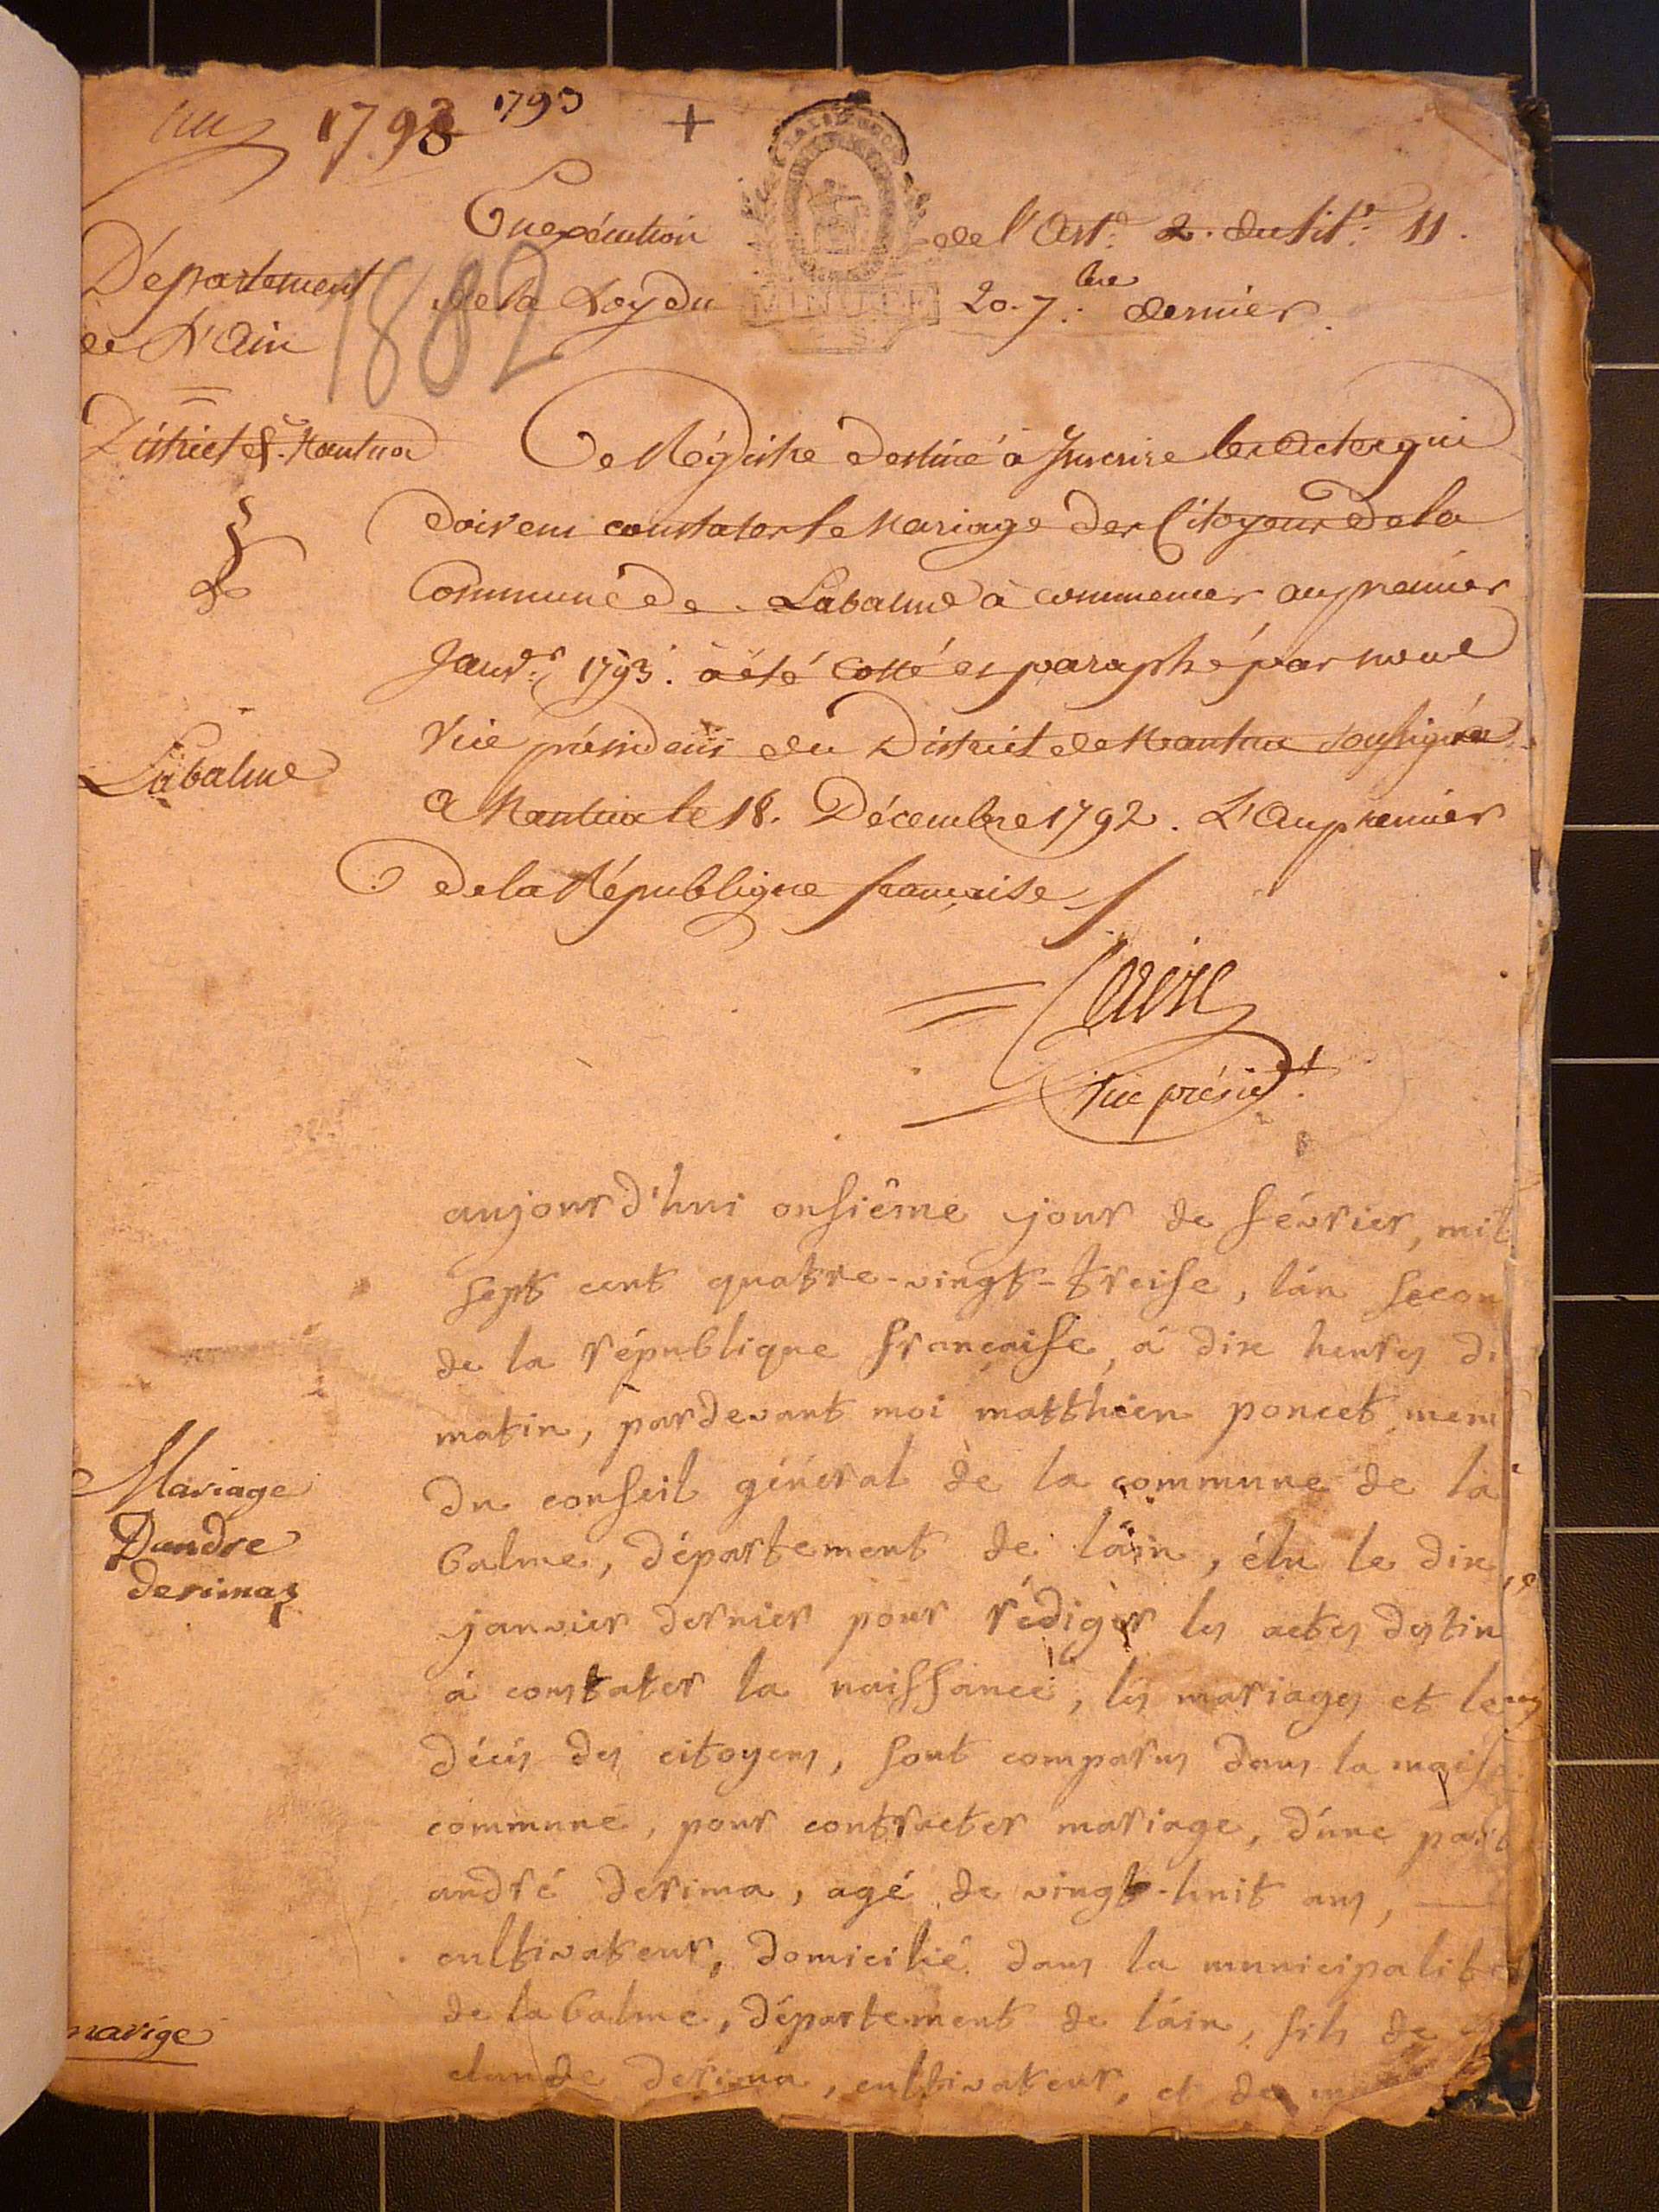 1793 1793
+
En exécution de l'Art.e 2. du tit.e 11.
de la Loy du 20. 7.bre dernier.
MINUTE
1882
Département
de L'Ain
District de Nantua
Labalme
Ce Régistre destiné à Inscrire les Actes qui
doivent constater le Mariage des Citoyens de la
Commune de Labalme à commencer au premier
Janv.er 1793. à été Cotté et paraphé par nous
Vice président du District de Nantua soussigné
A Nantua le 18. Décembre 1792. L'An premier
de la République française
Vice présid.t
aujourd'hui onsiême jour de février, mil
sept cent quatre-vingt-treise, l'an secon
de la république française, à dix heures d
matin, pardevant moi matthieu poncet mem
du conseil général de la commune de la
balme, département de l'ain, élu le dix
janvier dernier pour rédiger les actes destin
à constater la naissance, les mariages et le
décès des citoyens, sont comparus dans la maiso
commune, pour contracter mariage, d'une part
andré derima, agé de vingt-huit ans,
cultivateur, domicilié dans la municipalité
de la balme, département de l'ain, fils de
claude derima, cultivateur, et de
Mariage
Dandre
derimaz
marige